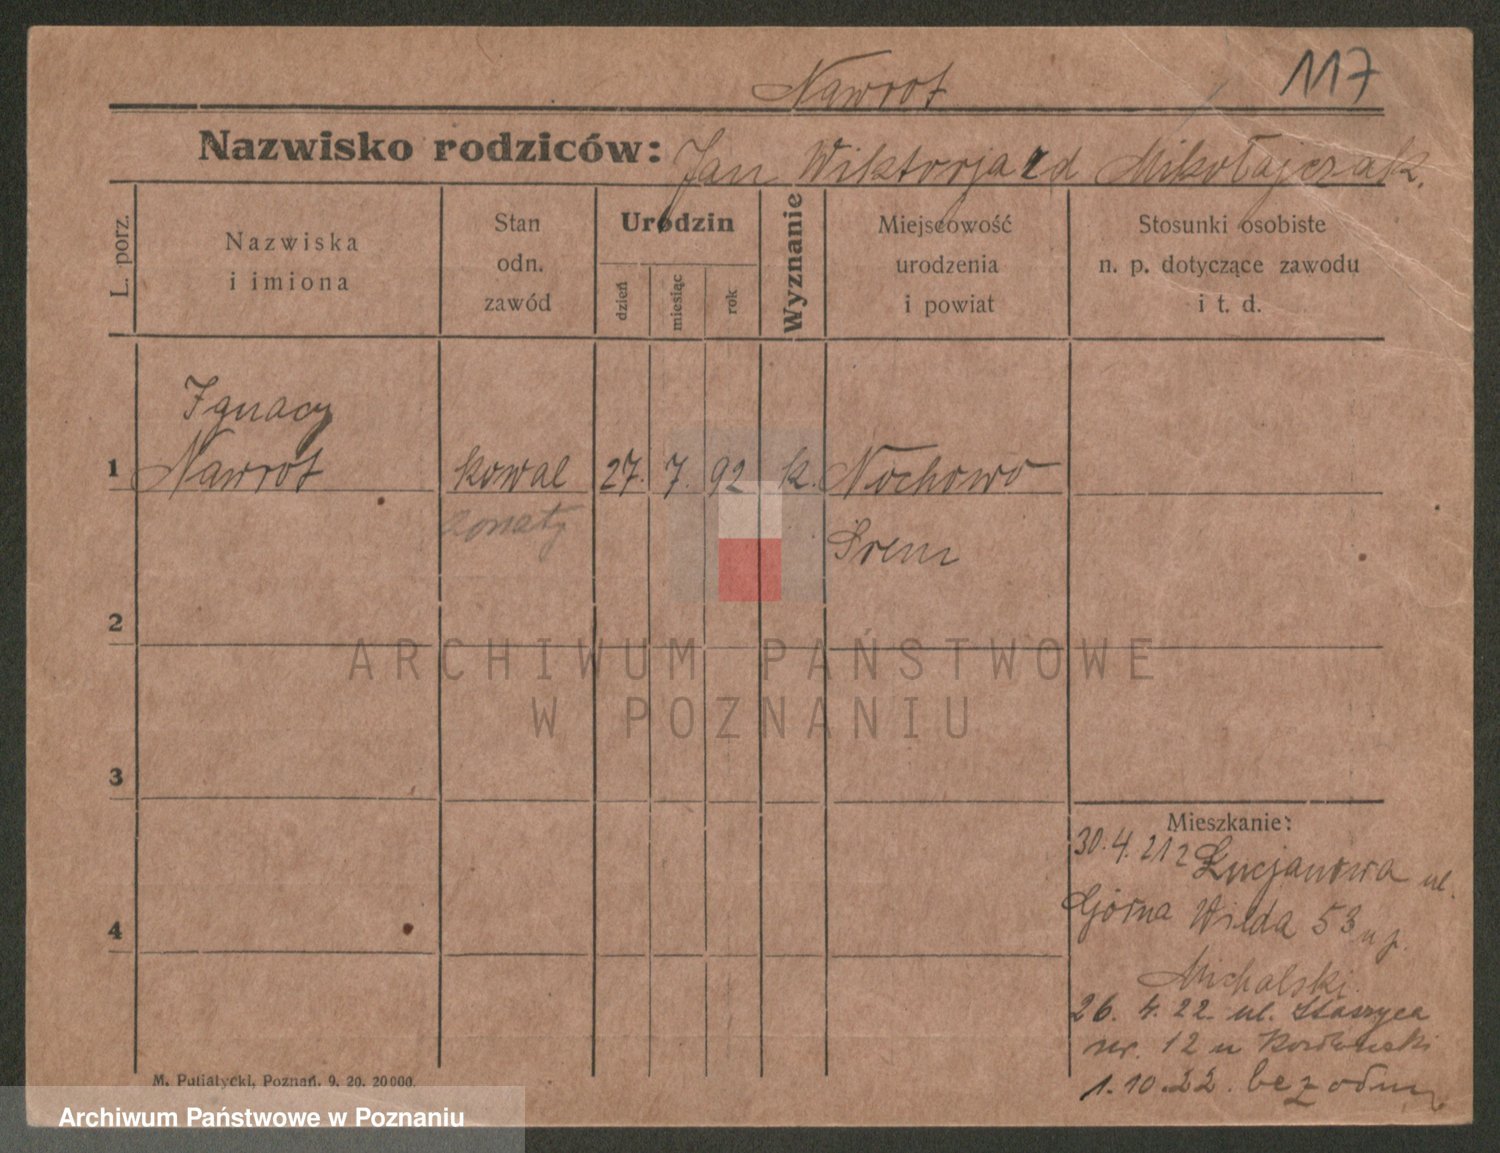 Nawrot
117
Nazwisko rodziców: Jan Wiktorja zd Mikołajczak.
L. porz.
Nazwiska
i imiona
Stan
odn.
zawód
Urodzin
dzień
miesiąc
rok
Wyznanie
Miejscowość
urodzenia
i powiat
Stosunki osobiste
n. p. dotyczące zawodu
i t. d.
Ignacy
1 Nawrot kowal 27. 7. 92 k. Nochowo
żonaty
Śrem
2
ARCHIWUM PAŃSTWOWE
W POZNANIU
3
Mieszkanie:
30. 4. 21 z Lucjanowa ul.
Górna Wilda 53 u p.
4
Michalski
26. 4. 22 ul. Staszyca
nr. 12 u
1. 10. 22. bez odm.
M. Putiatycki, Poznań. 9. 20. 20000.
Archiwum Państwowe w Poznaniu